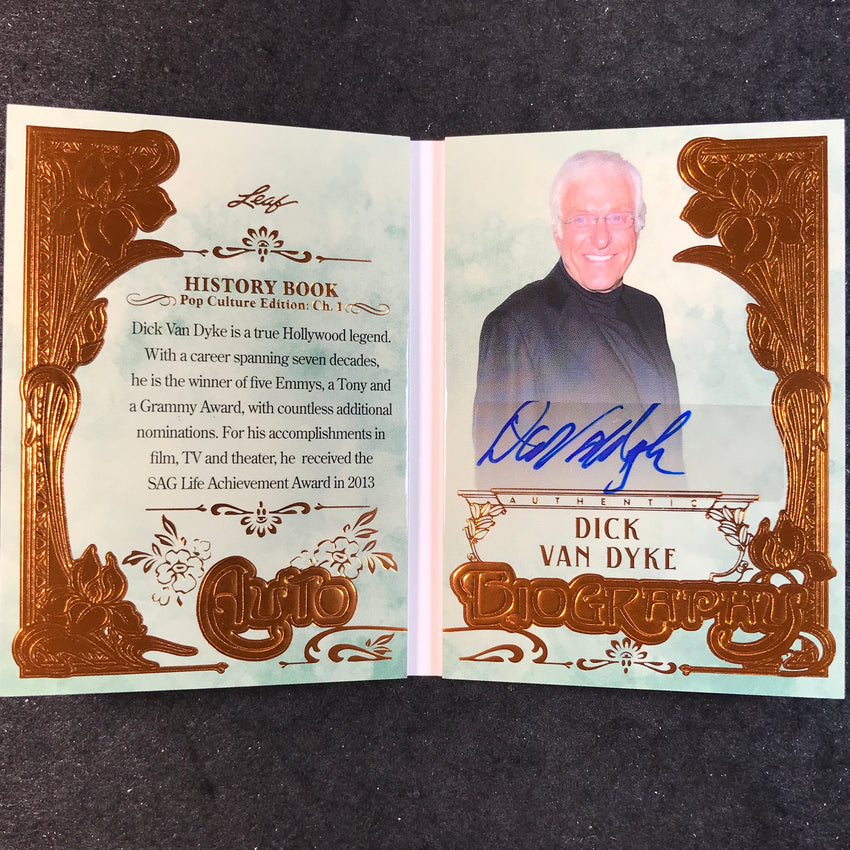 Leaf
HISTORY BOOK
Pop Culture Edition: Ch. 1
Dick Van Dyke is a true Hollywood legend.
With a career spanning seven decades,
he is the winner of five Emmys, a Tony and
a Grammy Award, with countless additional
nominations. For his accomplishments in
film, TV and theater, he received the
SAG Life Achievement Award in 2013
AUTO
Dick Van Dyke
AUTHENTIC
DICK
VAN DYKE
BIOGRAPHY